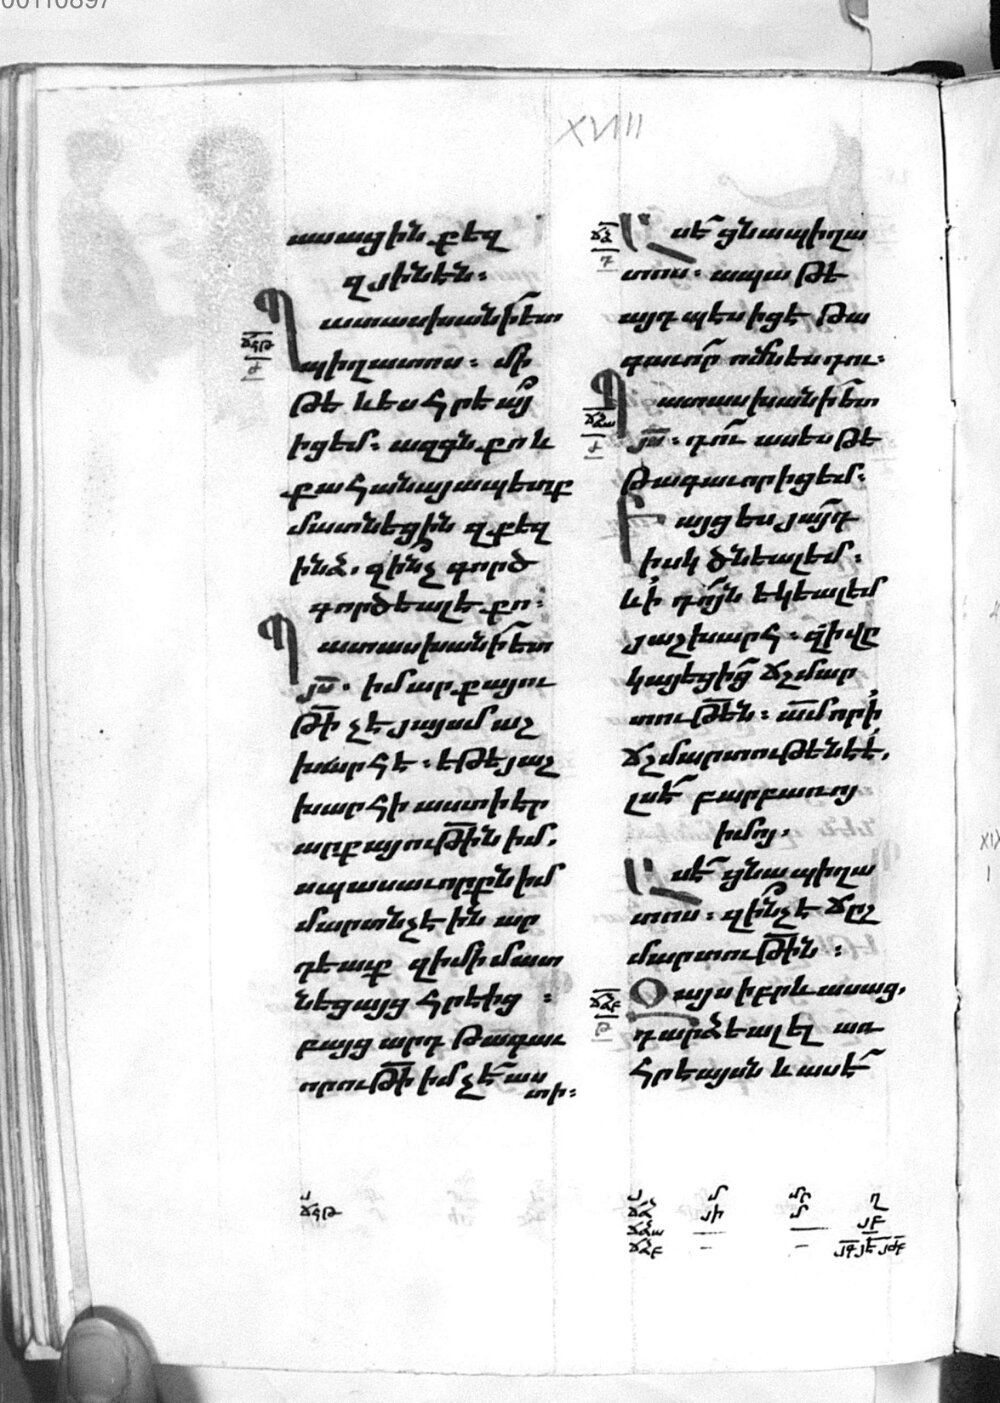 00110897
XVIII
ասացին քեզ
զյինէն։
Պատասխանի ետ
պիղատոս։ մի
թէ և ես հրեայ
իցեմ։ ազգն քո և
քահանայապետք
մատնեցին զքեզ
ինձ, զինչ գործ
գործեալ է քո։
Պատասխանի ետ
յս. իմ արքայու
թի չէ յայսմ աշ
խարհէ։ եթե յաշ
խարհի աստի էր
արքայութին իմ,
սպասաւորքն իմ
մարտնչէին ար
դեաւք զի մի մատ
նեցայց հրէից ։
բայց արդ թագաւ
որութի իմ չէ աս
տի։
ճհթ
Ասէ ցնա պիղա
տոս։ ապա թէ
այդպէս իցէ թա
գաւոր ոմն ես դու։
Պատասխանի ետ
յս. դու ասես թէ
թագաւոր իցեմ։
Բայց ես յայդ
իսկ ծնեալ եմ։
և ի դոյն եկեալ եմ
յաշխարհ. զի վը
կայեցից ճշմար
տութեն։ ամ որ ի
ճշմարտութենէ է,
լսէ բարբառոյ
իմոյ.
Ասէ ցնա պիղա
տոս։ զինչ է ճըշ
մարտութին ։
Զայս իբրև ասաց,
դարձեալ ել առ
հրեայսն և ասէ
ճհթ
ճձ
ճձա
ճձբ